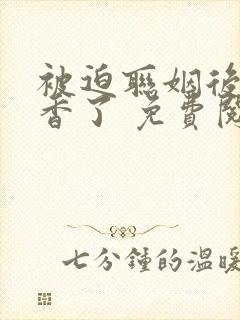 被迫聯姻後
香了 免費閱
七分鐘的溫暖